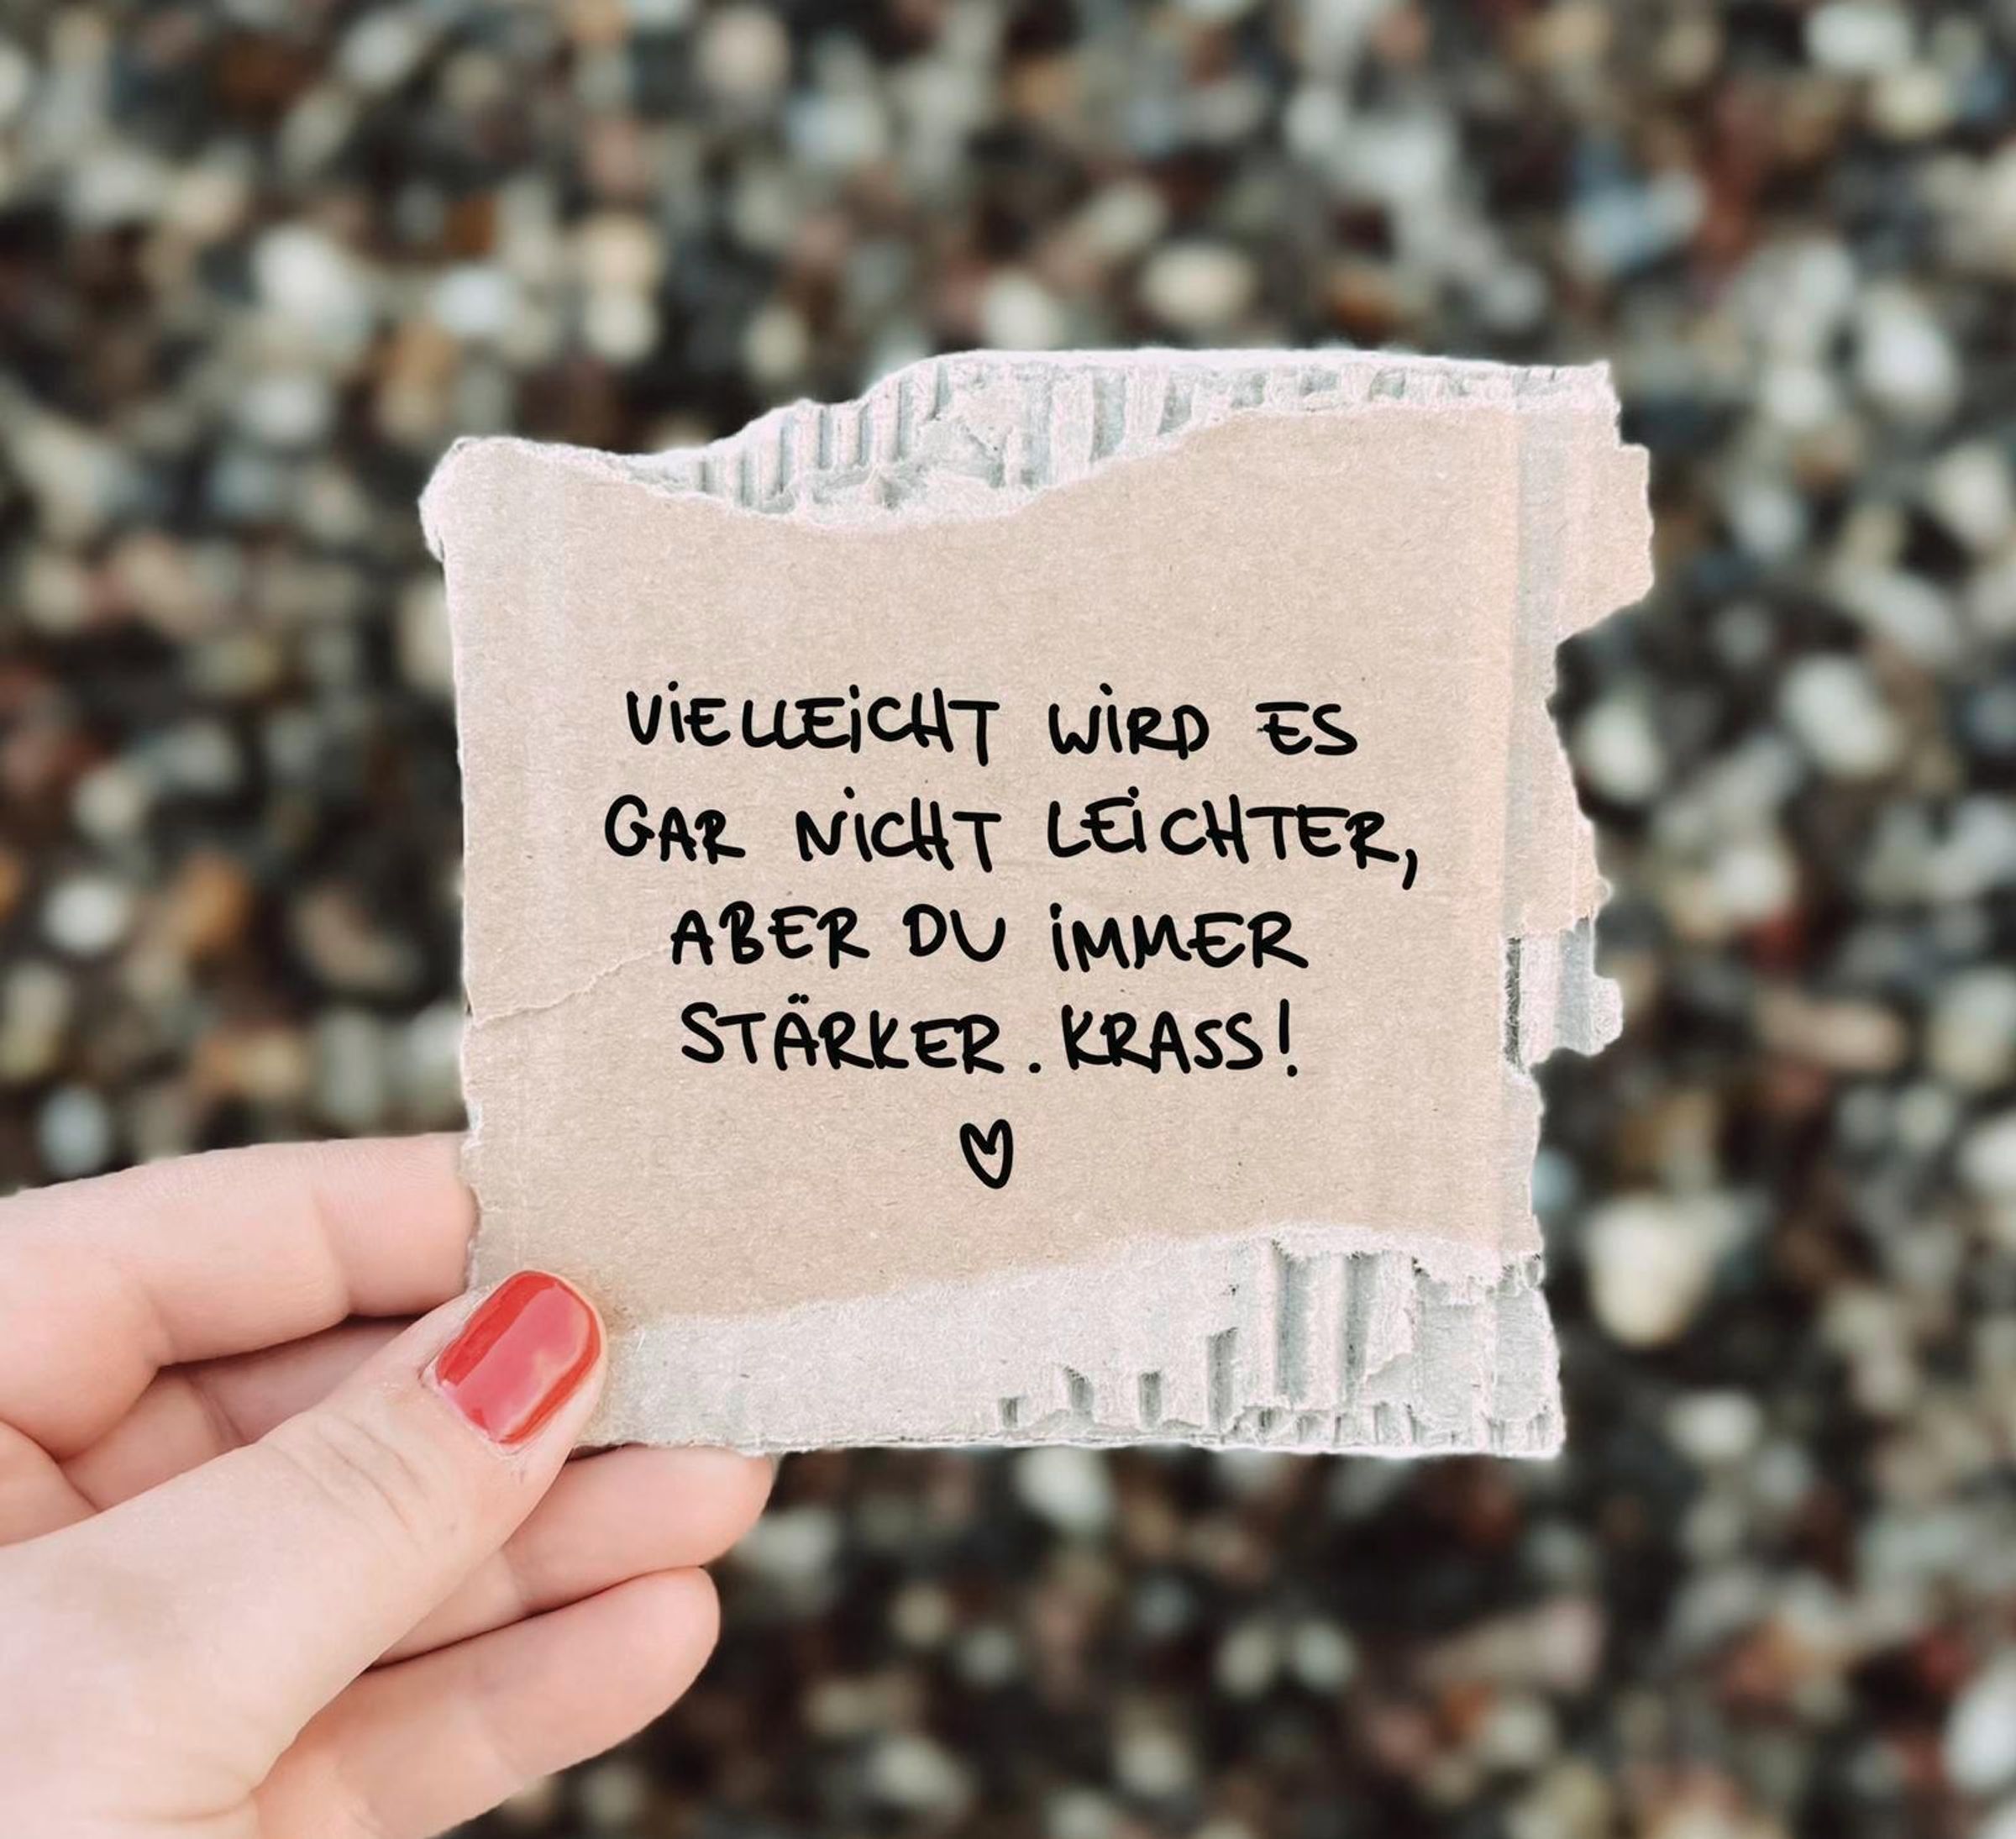 ViELLEiCHT WiRD ES
GAR NiCHT LEiCHTER,
ABER DU iMMER
STÄRKER. KRASS!
♡